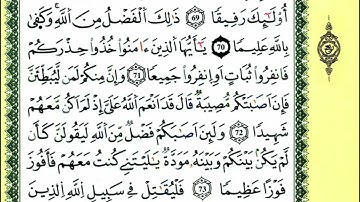 أُوْلَٰٓئِكَ رَفِيقًا ٦٩ ذَٰلِكَ ٱلْفَضْلُ مِنَ ٱللَّهِ وَكَفَىٰ
بِٱللَّهِ عَلِيمًا ٧٠ يَٰٓأَيُّهَا ٱلَّذِينَ ءَامَنُوا۟ خُذُوا۟ حِذْرَكُمْ
فَٱنفِرُوا۟ ثُبَاتٍ أَوِ ٱنفِرُوا۟ جَمِيعًا ٧١ وَإِنَّ مِنكُمْ لَمَن لَّيُبَطِّئَنَّ
فَإِنْ أَصَٰبَتْكُم مُّصِيبَةٌ قَالَ قَدْ أَنْعَمَ ٱللَّهُ عَلَىَّ إِذْ لَمْ أَكُن مَّعَهُمْ
شَهِيدًا ٧٢ وَلَئِنْ أَصَٰبَكُمْ فَضْلٌ مِّنَ ٱللَّهِ لَيَقُولَنَّ كَأَن
لَّمْ يَكُنۢ بَيْنَكُمْ وَبَيْنَهُۥ مَوَدَّةٌ يَٰلَيْتَنِى كُنتُ مَعَهُمْ فَأَفُوزَ
فَوْزًا عَظِيمًا ٧٣ فَلْيُقَٰتِلْ فِى سَبِيلِ ٱللَّهِ ٱلَّذِينَ